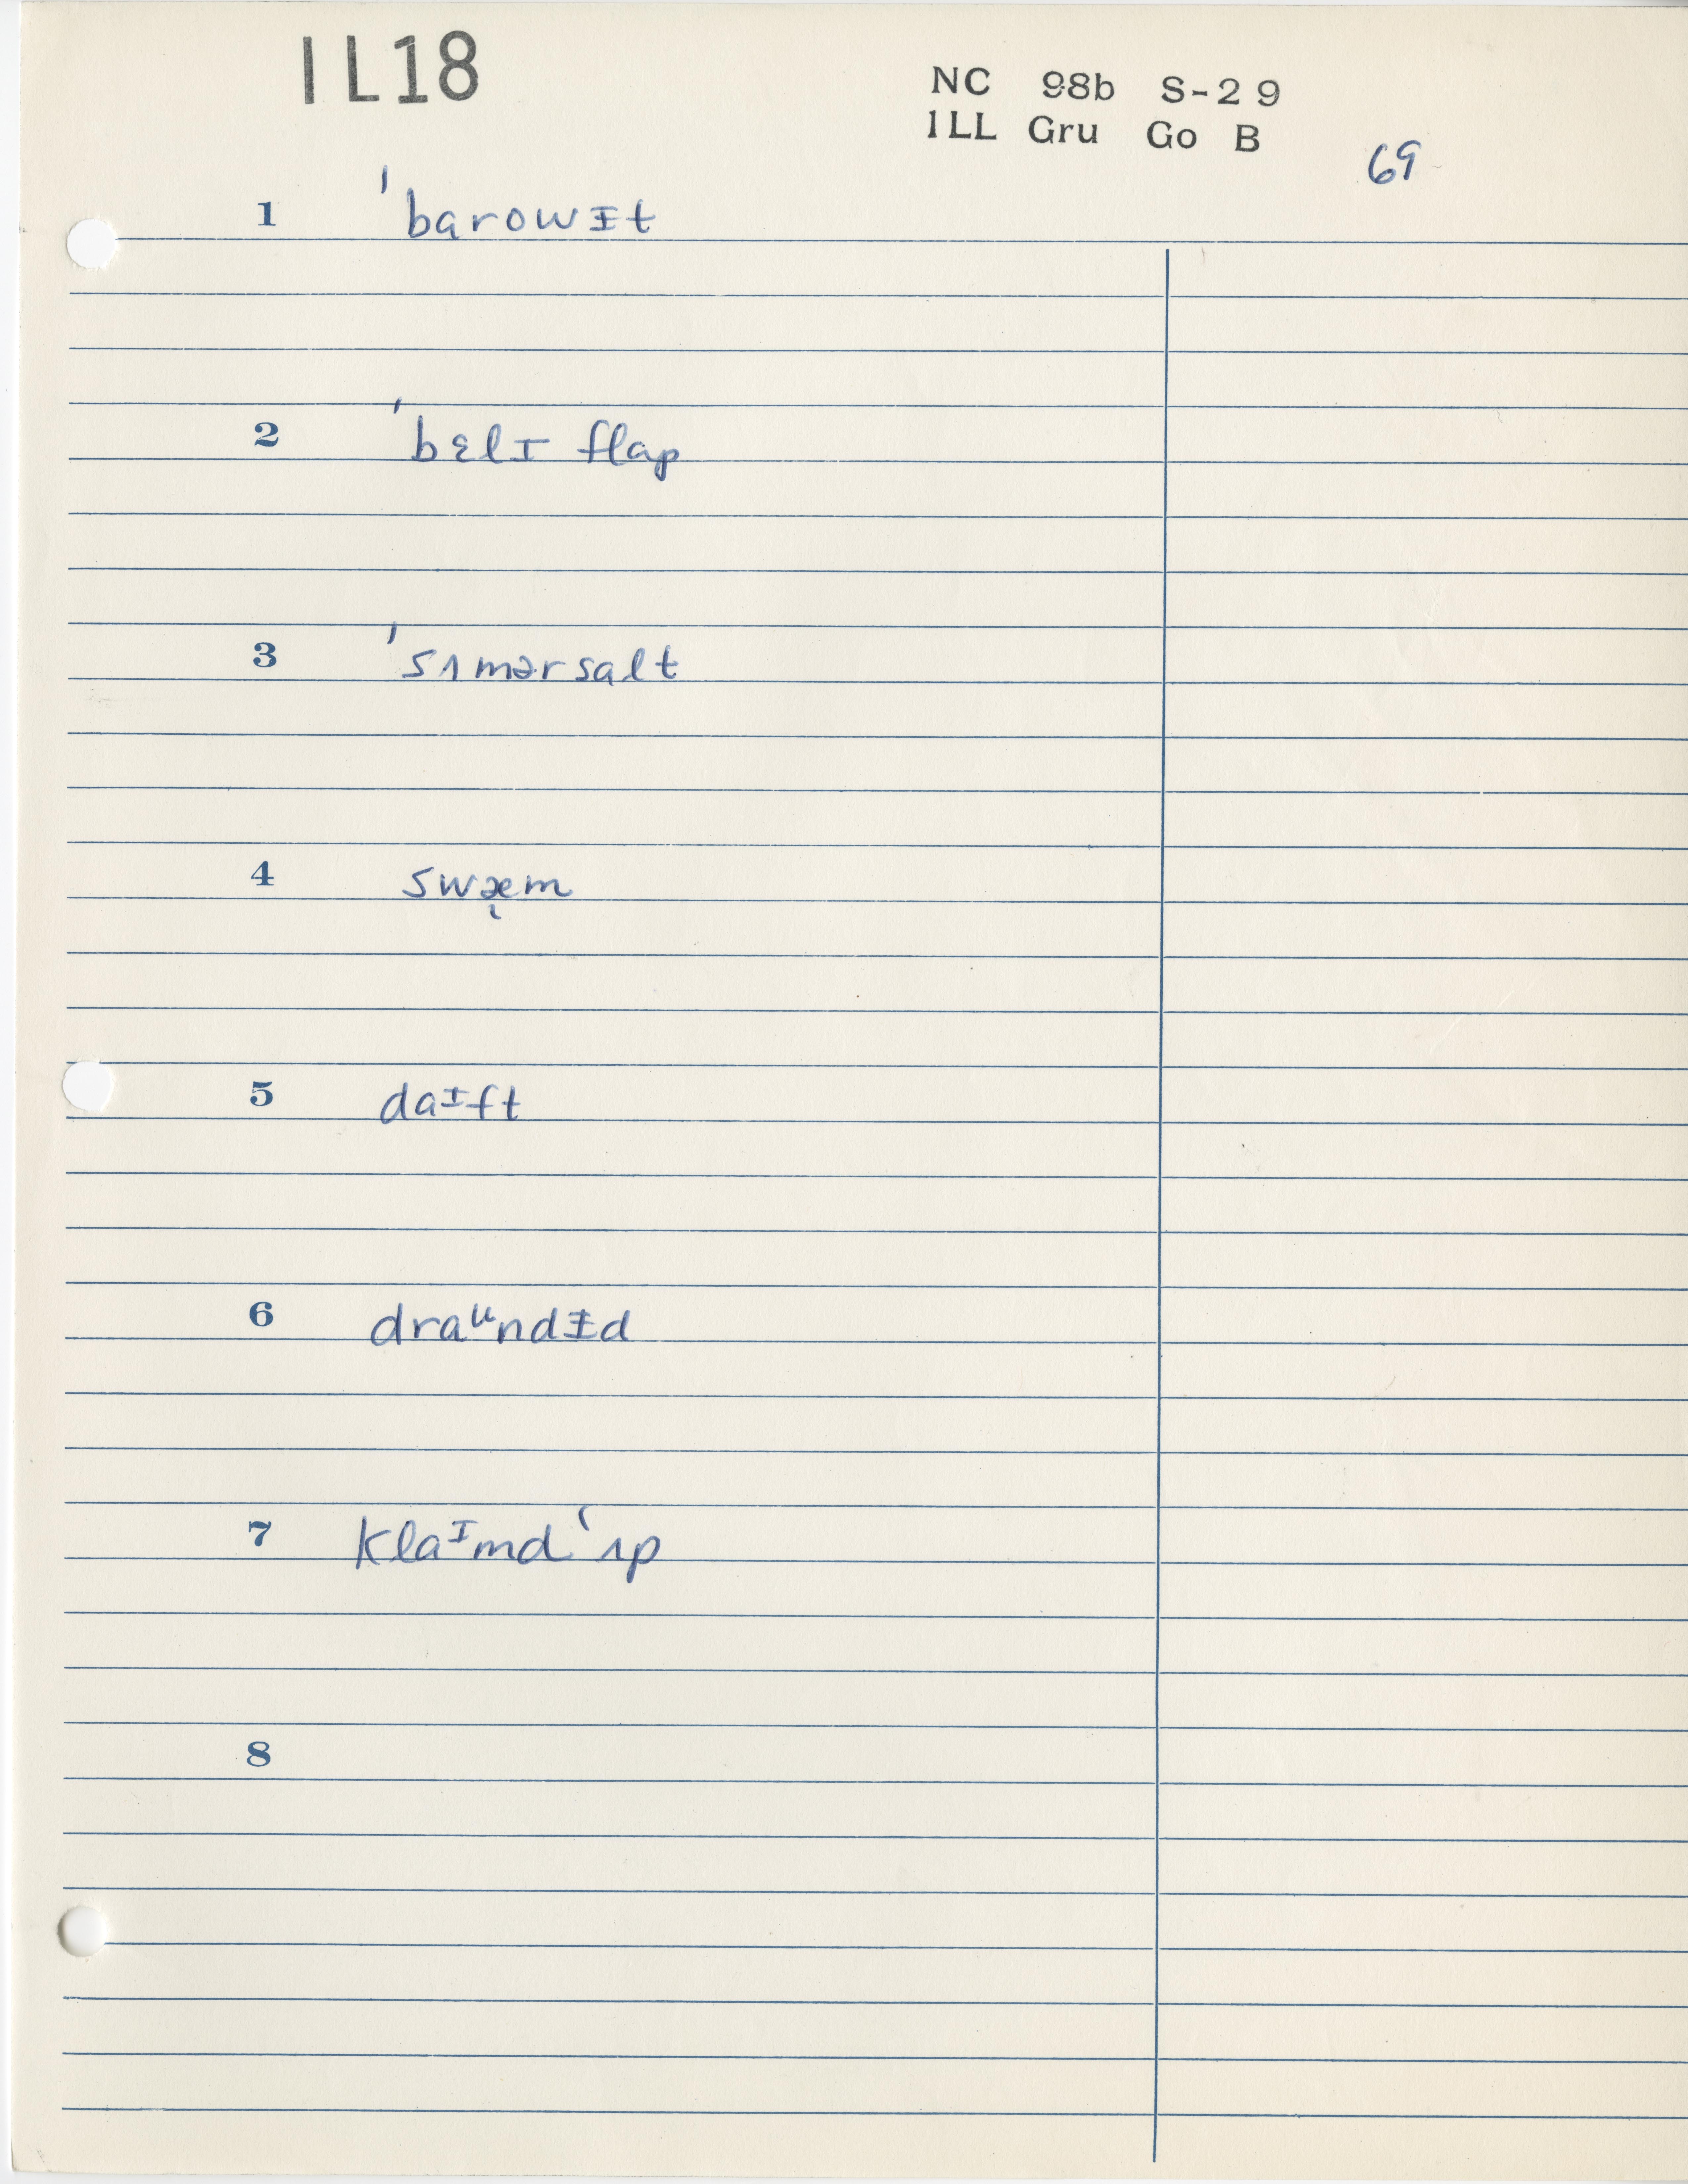 IL18
NC 98b S-29
ILL Gru Go B
69
1 ˈbarowɪ̵t
2 ˈbɛlɪ flap
3 ˈsʌmərsalt
4 swæ̨m
5 daᶦft
6 draᵘndɪ̵d
7 klaᶦmdˈʌp
8